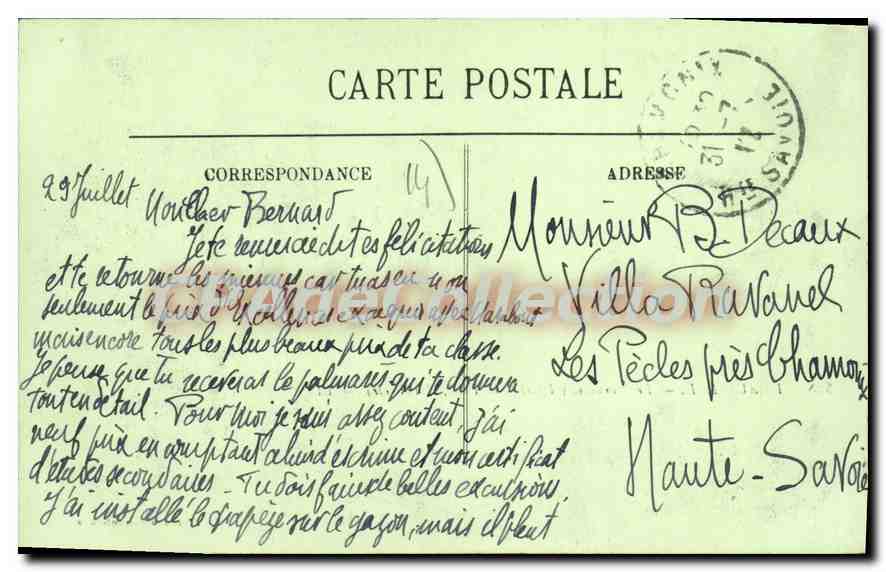 CARTE POSTALE
CORRESPONDANCE
ADRESSE
29 Juillet
Mon cher Bernard
Je te remercie de tes félicitations
et te retourne les miennes car tu as eu non
seulement le prix d'
mais encore tous les plus beaux prix de ta classe.
Je pense que tu recevras le palmarès qui te donnera
tout en détail. Pour moi je suis assez content, j'ai
neuf prix en comptant celui d'escrime et mon certificat
d'études secondaires - Tu dois faire de belles excursions.
J'ai installé le trapèze sur le gazon, mais il pleut
Monsieur B. Decaux
Villa Ravanel
Les Pècles près Chamonix
Haute-Savoie
31 -7
12
Hte SAVOIE
Collection